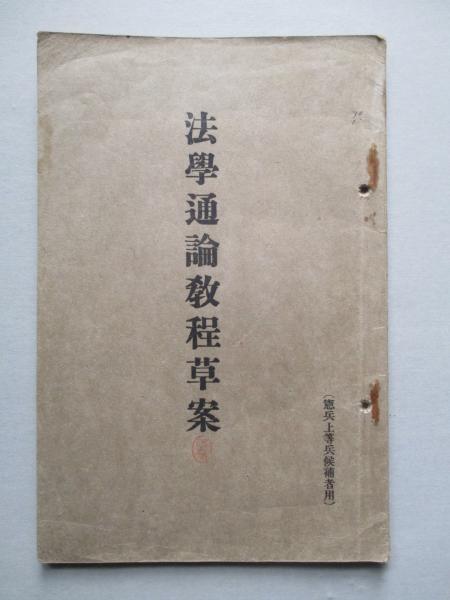 (憲兵上等兵候補者用)
法學通論教程草案